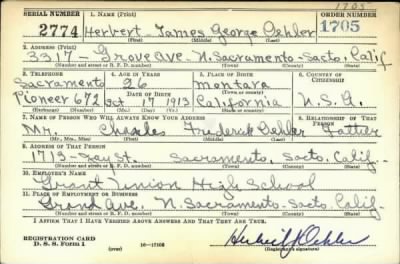 1705
SERIAL NUMBER 1. NAME (Print) ORDER NUMBER
2774 Herbert James George Oehler 1705
(First) (Middle) (Last)
2. ADDRESS (Print)
3317 - Grove Ave. N. Sacramento - Sacto, Calif.
(Number and Street or R. F. D. number) (Town) (County) (State)
3. TELEPHONE 4. AGE IN YEARS 5. PLACE OF BIRTH 6. COUNTRY OF CITIZENSHIP
Sacramento 26 Montara
Pioneer 672 Oct 17 1913 California U.S.A.
(Mo.) (Day) (Yr.)
7. NAME OF PERSON WHO WILL ALWAYS KNOW YOUR ADDRESS 8. RELATIONSHIP OF THAT PERSON
Mr. Charles Frederick Oehler Father
(Mr., Mrs., Miss) (First) (Middle) (Last)
9. ADDRESS OF THAT PERSON
1713 - St. Sacramento, Sacto, Calif.
(Number and Street or R. F. D. number) (Town) (County) (State)
10. EMPLOYER'S NAME
Grant Union High School
11. PLACE OF EMPLOYMENT OR BUSINESS
Grand Ave. N. Sacramento - Sacto, Calif.
(Number and Street or R. F. D. number) (Town) (County) (State)
I AFFIRM THAT I HAVE VERIFIED ABOVE ANSWERS AND THAT THEY ARE TRUE.
REGISTRATION CARD
D. S. S. Form 1 16-17105 Herbert J Oehler
(Registrant's signature)